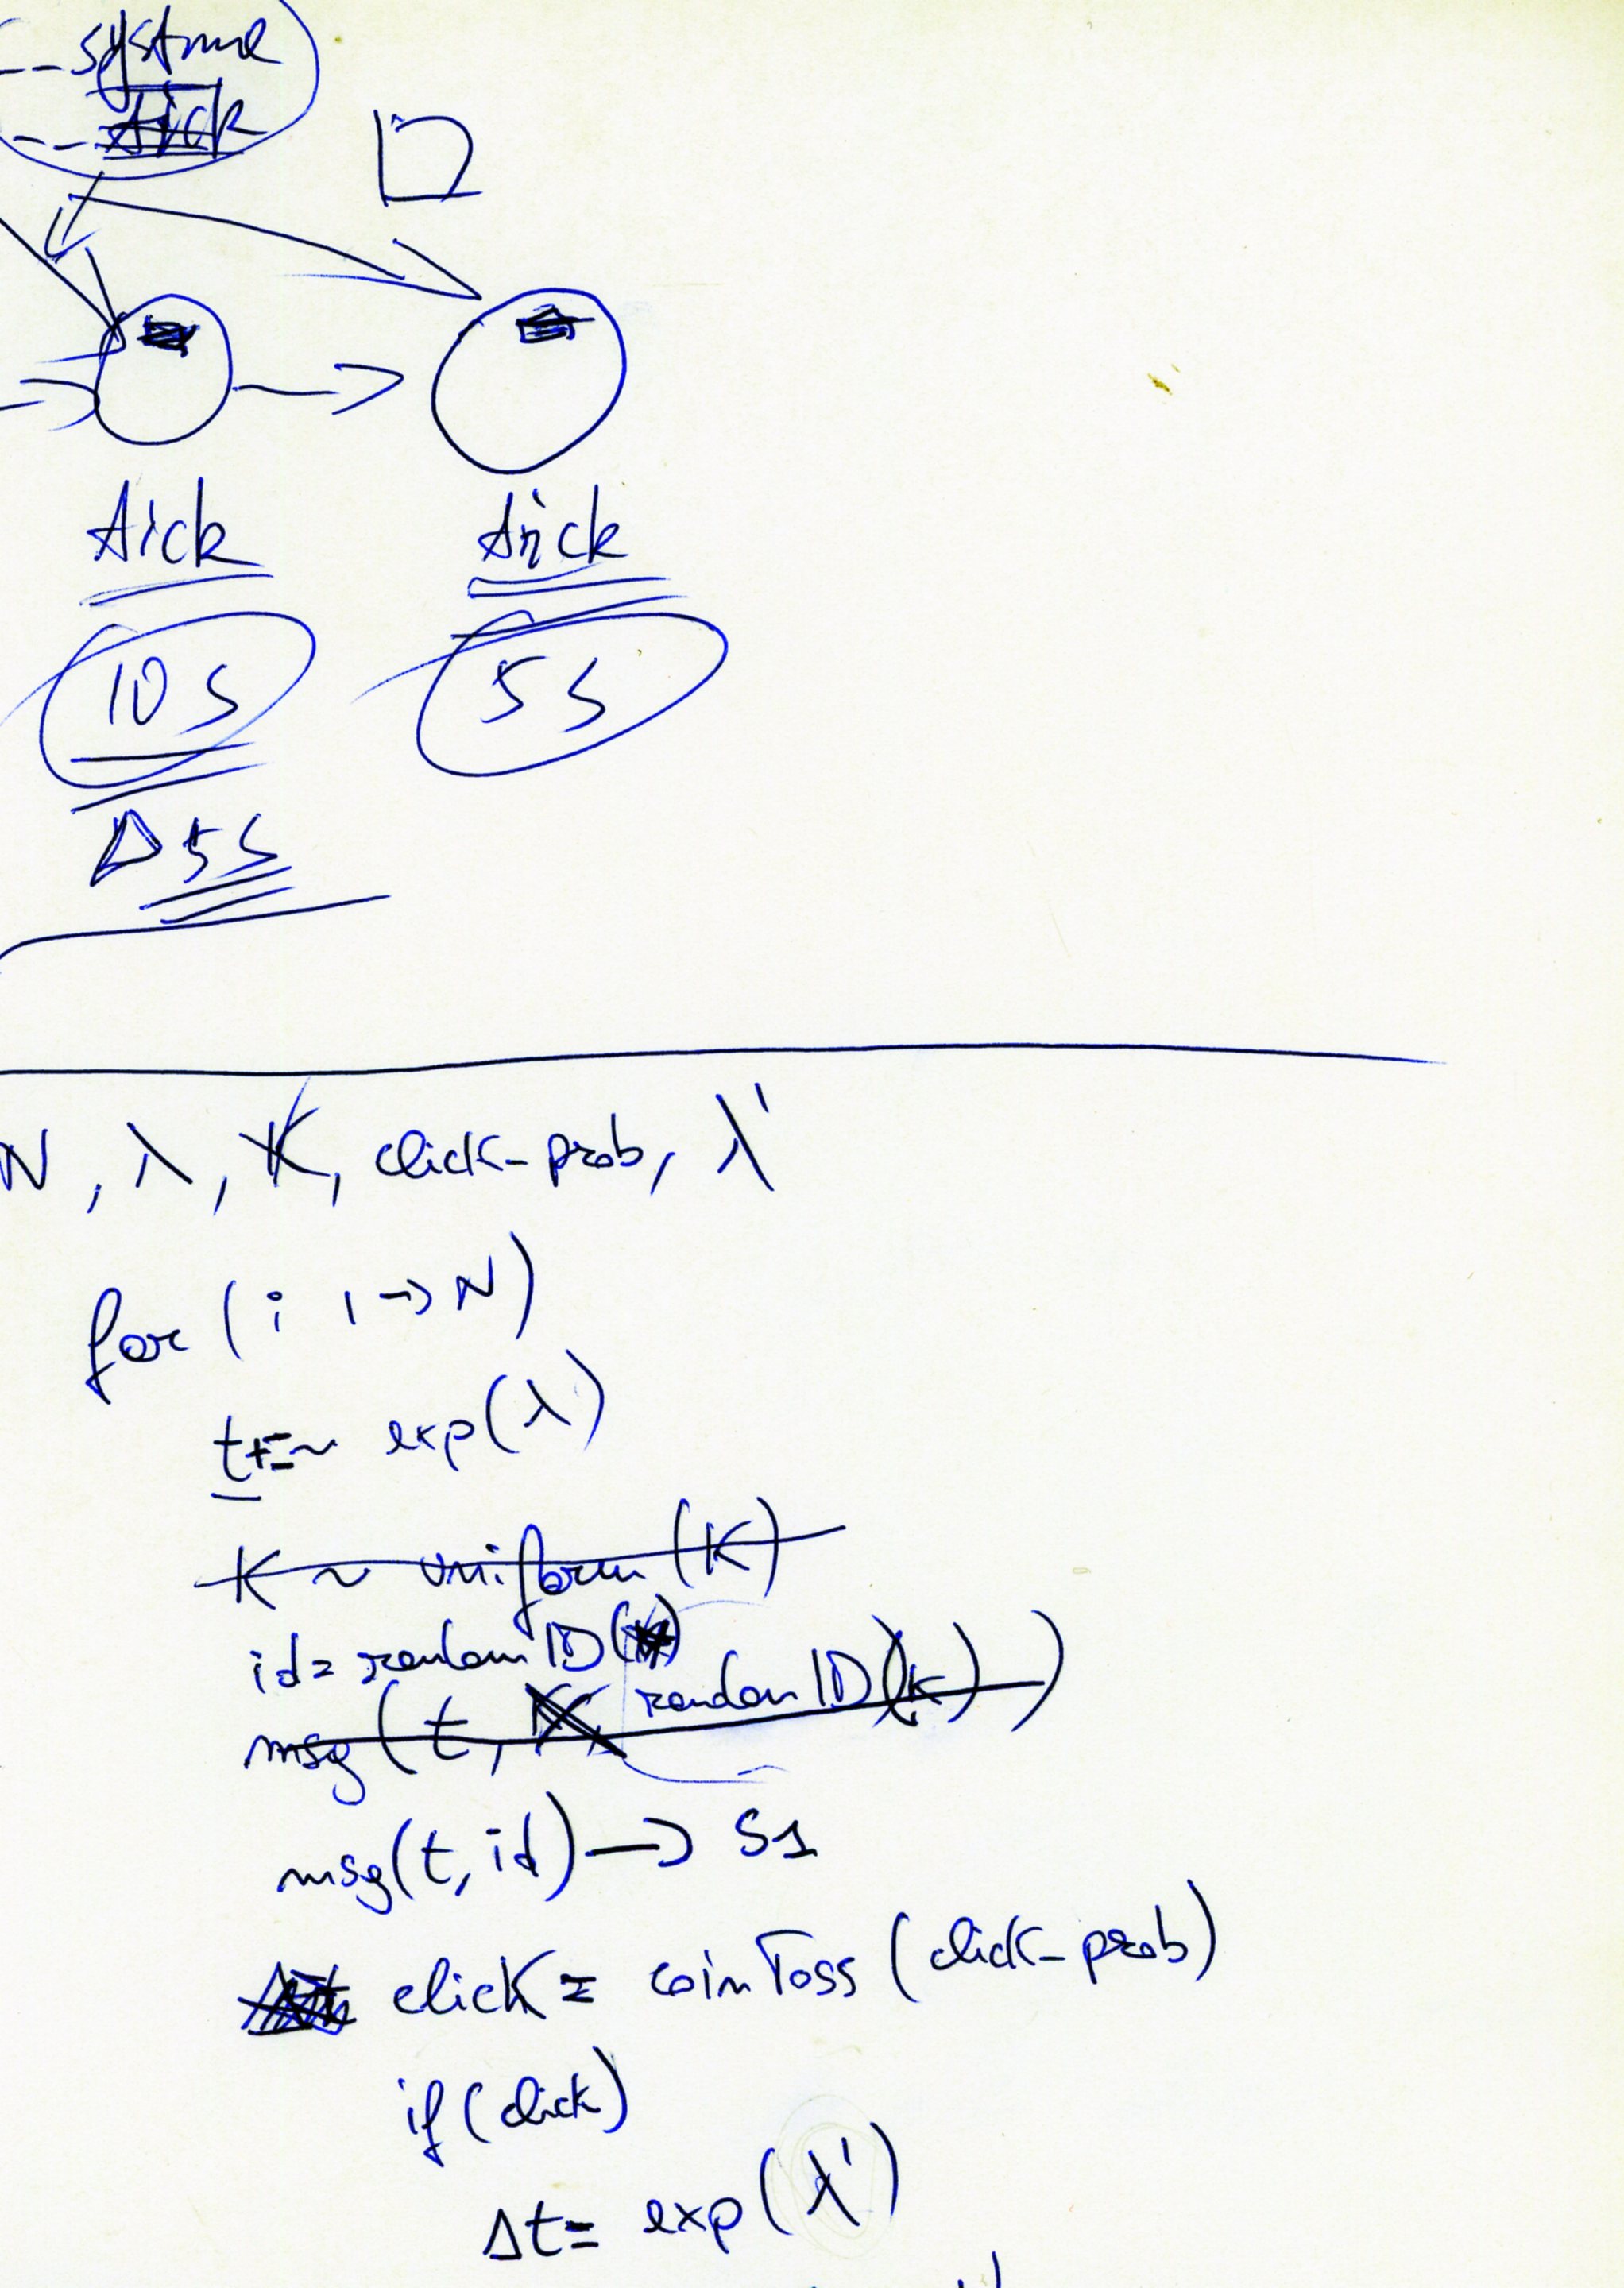 --systeme
--tick
tick tick
10 s 5 s
Δ 5s
N, λ, K, click-prob, λ'
for (i 1 -> N)
t += ~ exp(λ)
K ~ uniform (K)
id = random ID( )
msg (t, random ID(K))
msg(t, id) -> S1
click = coinToss (click-prob)
if (click)
Δt = exp(λ')